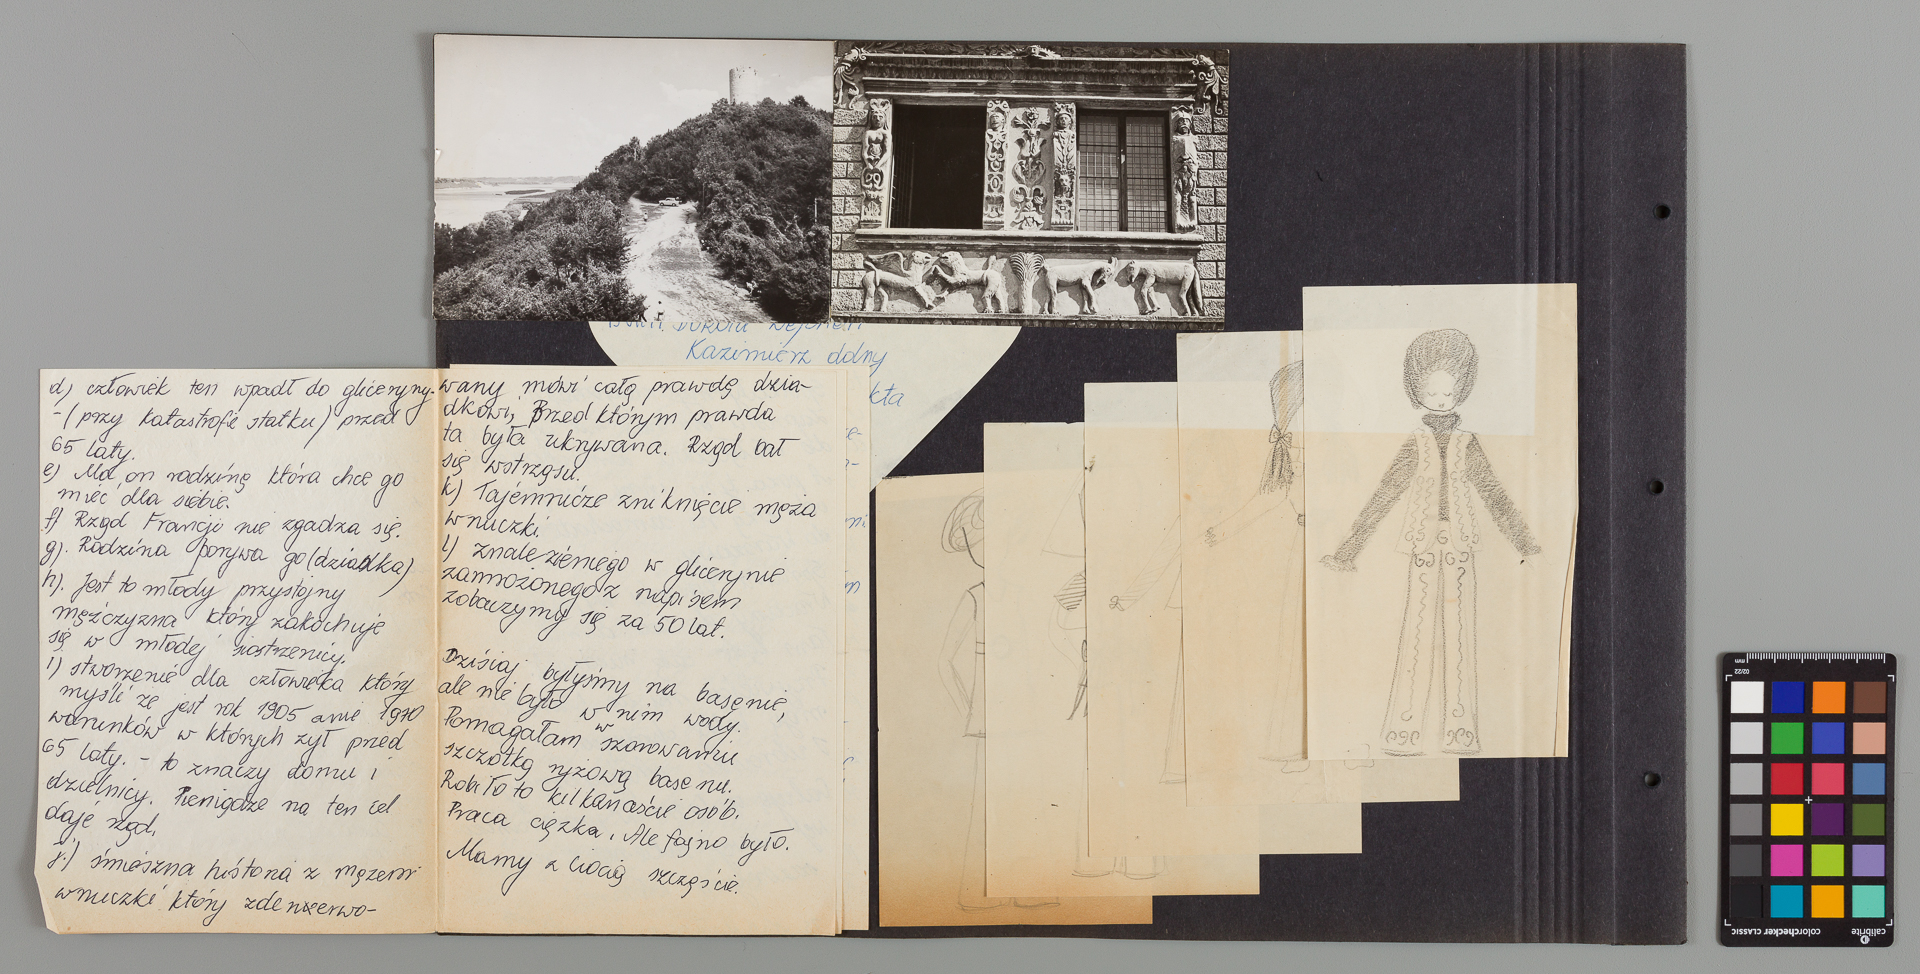 Kazimierz dolny
kta
d) człowiek ten wpadł do gliceryny-
-(przy katastrofie statku) przed
65 laty.
e) Ma on rodzinę która chce go
mieć dla siebie.
f) Rząd Francji nie zgadza się.
g). Rodzina porywa go (dziadka)
h). Jest to młody przystojny
mężczyzna który zakochuje
się w młodej siostrzenicy.
i) stworzenie dla człowieka który
myśli że jest rok 1905 a nie 1970
warunków w których żył przed
65 laty. - to znaczy domu i
dzielnicy. Pieniądze na ten cel
daje rząd.
j) śmieszna historia z mężem
wnuczki który zdenerwo-
wany mówi całą prawdę dzia-
dkowi, Przed którym prawda
ta była ukrywana. Rząd bał
się wstrząsu.
k) Tajemnicze zniknięcie męża
wnuczki.
l) znalezienie go w glicerynie
zamrożonego z napisem
zobaczymy się za 50 lat.
Dzisiaj byłyśmy na basenie,
ale nie było w nim wody.
Pomagałam w szorowaniu
szczotką ryżową basenu.
Robiło to kilkanaście osób.
Praca ciężka. Ale fajno było.
Mamy z ciocią szczęście.
mm
02/22
calibrite
colorchecker CLASSIC